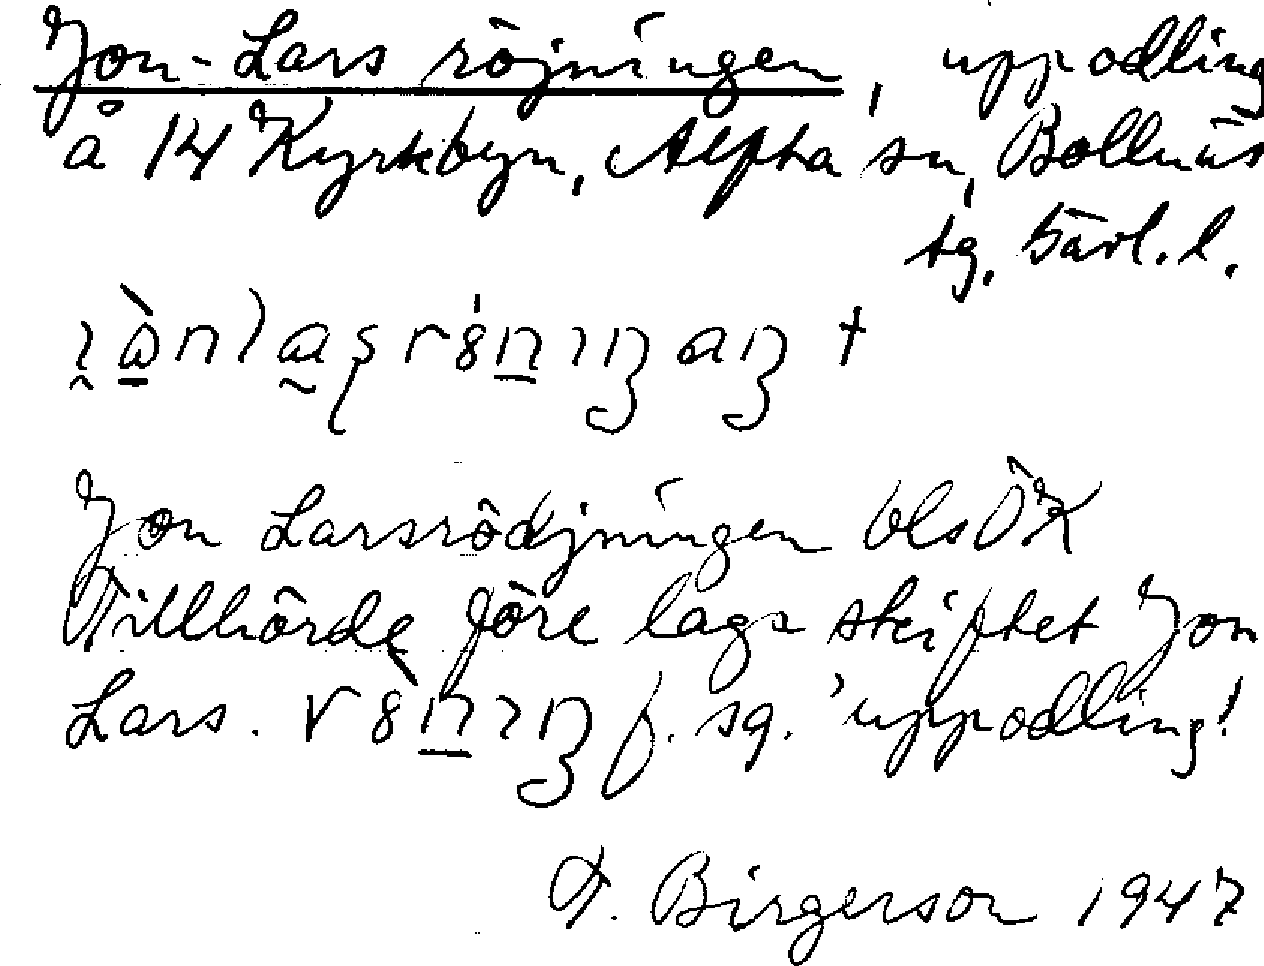 Jon-Lars röjningen, uppodling
å 14 Kyrkbyn, Alfta sn, Bollnäs
tg. Gävl. l.
Jon Larsrödjningen bls ÖK
Tillhörde före laga skiftet Jon
Lars. f. sg. 'uppodling'
T. Birgerson 1947